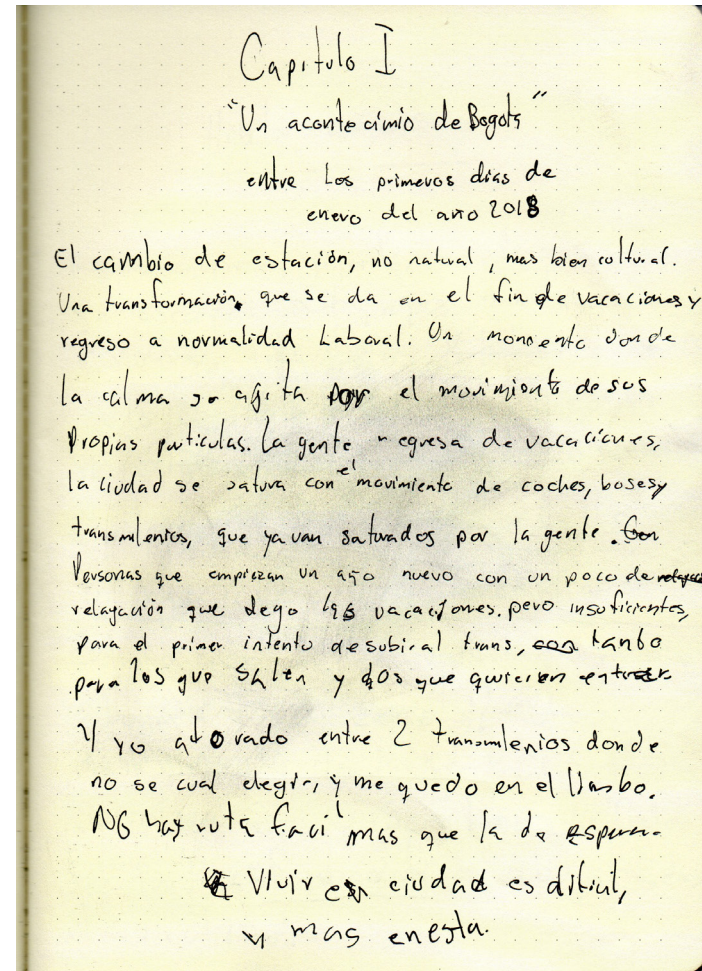 Capitulo I
"Un acontecimio de Bogota"
entre Los primeros dias de
enero del año 2018
El cambio de estación, no natural, mas bien cultural.
Una transformación, que se da en el fin de vacaciones y
regreso a normalidad Laboral. Un momento donde
la calma se agita por el movimiento de sus
Propias particulas. La gente regresa de vacaciones,
la ciudad se satura con el movimiento de coches, buses y
transmilenios, que ya van saturados por la gente.
Personas que empiezan un año nuevo con un poco de
relagación que dego las vacaciones. pero insuficientes,
para el primer intento de subir al trans, tanto
para los que salen y los que quieren entrar
Y yo atorado entre 2 transmilenios donde
no se cual elegir, y me quedo en el limbo.
NO hay ruta facil mas que la de esperar.
Vivir en ciudad es dificil,
y mas en esta.